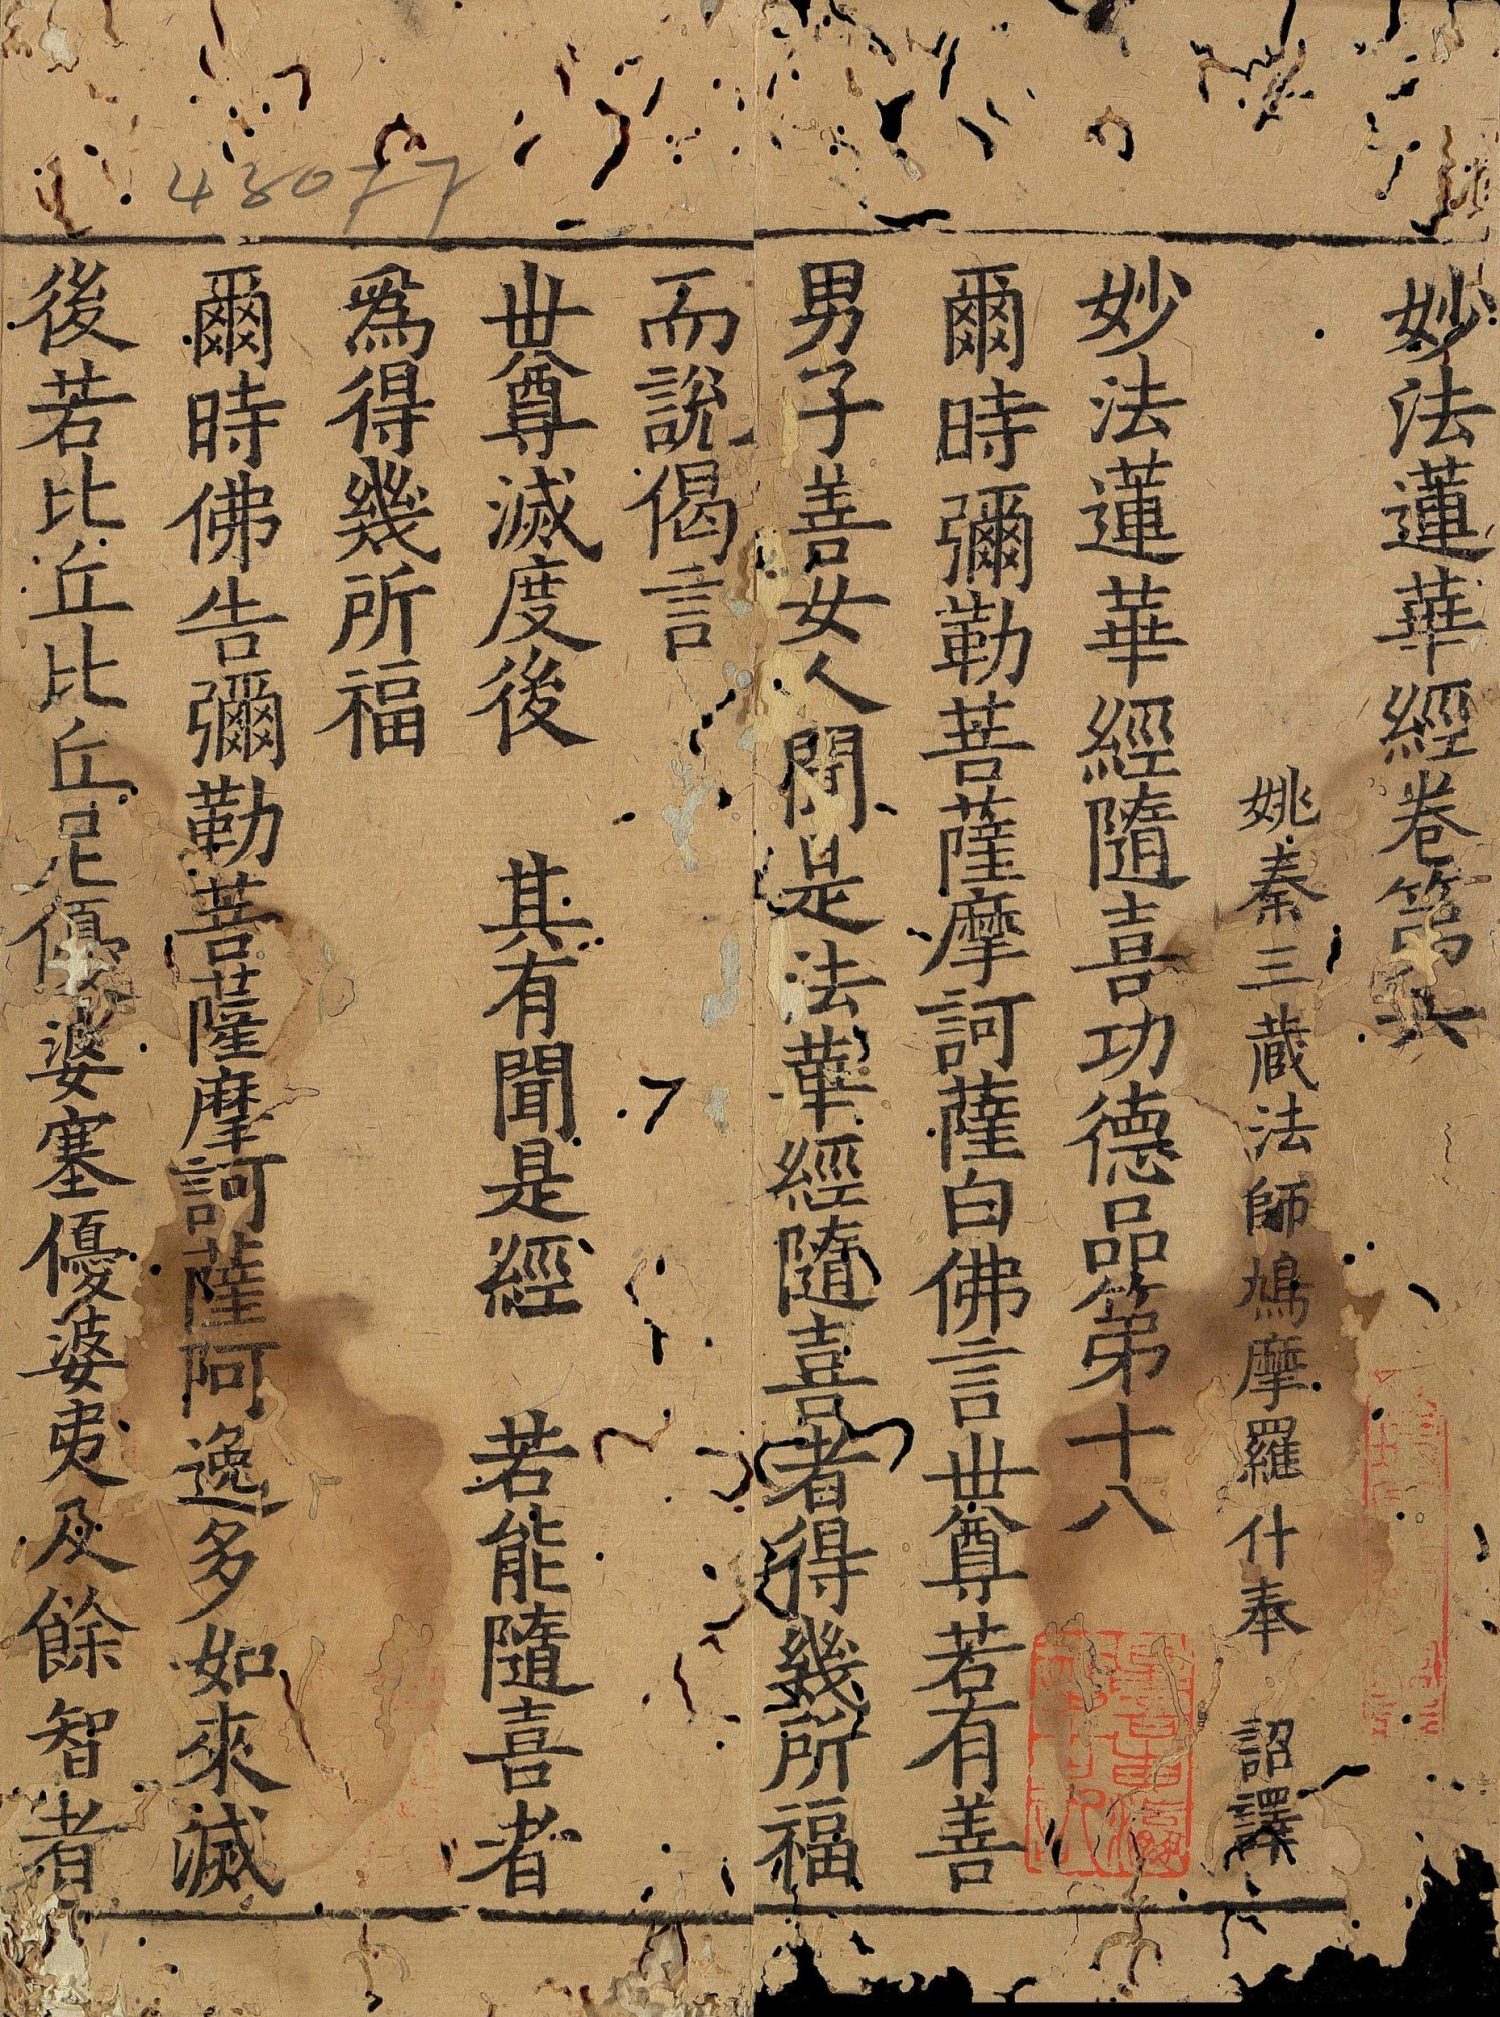 妙法蓮華經卷第六
姚秦三蔵法師鳩摩羅什奉 詔譯
妙法蓮華經隨喜功德品第十八
爾時彌勒菩薩摩訶薩白佛言世尊若有善
男子善女人聞是法華經隨喜者得幾所福
而說偈言
世尊滅度後 其有聞是經 若能隨喜者
爲得幾所福
爾時佛告彌勒菩薩摩訶薩阿逸多如來滅
後若比丘比丘尼優婆塞優婆夷及餘智者
43077